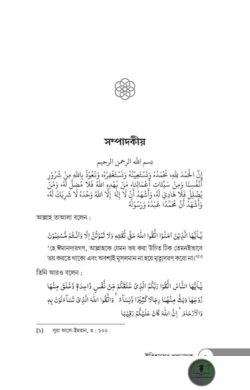 সম্পাদকীয়
بسم الله الرحمن الرحيم
إِنَّ الْحَمْدَ لِلَّهِ نَحْمَدُهُ وَنَسْتَعِينُهُ وَنَسْتَغْفِرُهُ، وَنَعُوذُ بِاللَّهِ مِنْ شُرُورِ
أَنْفُسِنَا وَمِنْ سَيِّئَاتِ أَعْمَالِنَا، مَنْ يَهْدِهِ اللَّهُ فَلَا مُضِلَّ لَهُ، وَمَنْ
يُضْلِلْ فَلَا هَادِيَ لَهُ، وَأَشْهَدُ أَنْ لَا إِلَهَ إِلَّا اللَّهُ وَحْدَهُ لَا شَرِيكَ لَهُ،
وَأَشْهَدُ أَنَّ مُحَمَّدًا عَبْدُهُ وَرَسُولُهُ
আল্লাহ তাআলা বলেন :
يَٰٓأَيُّهَا ٱلَّذِينَ ءَامَنُوا۟ ٱتَّقُوا۟ ٱللَّهَ حَقَّ تُقَاتِهِۦ وَلَا تَمُوتُنَّ إِلَّا وَأَنتُم مُّسْلِمُونَ
'হে ঈমানদারগণ, আল্লাহকে যেমন ভয় করা উচিত ঠিক তেমনইভাবে
ভয় করতে থাকো এবং অবশ্যই মুসলমান না হয়ে মৃত্যুবরণ করো না।'[১]
তিনি আরও বলেন :
يَٰٓأَيُّهَا ٱلنَّاسُ ٱتَّقُوا۟ رَبَّكُمُ ٱلَّذِى خَلَقَكُم مِّن نَّفْسٍ وَٰحِدَةٍ وَخَلَقَ مِنْهَا
زَوْجَهَا وَبَثَّ مِنْهُمَا رِجَالًا كَثِيرًا وَنِسَآءً ۚ وَٱتَّقُوا۟ ٱللَّهَ ٱلَّذِى تَسَآءَلُونَ بِهِۦ
وَٱلْأَرْحَامَ ۚ إِنَّ ٱللَّهَ كَانَ عَلَيْكُمْ رَقِيبًا
[১] সুরা আলে-ইমরান, ৩ : ১০২